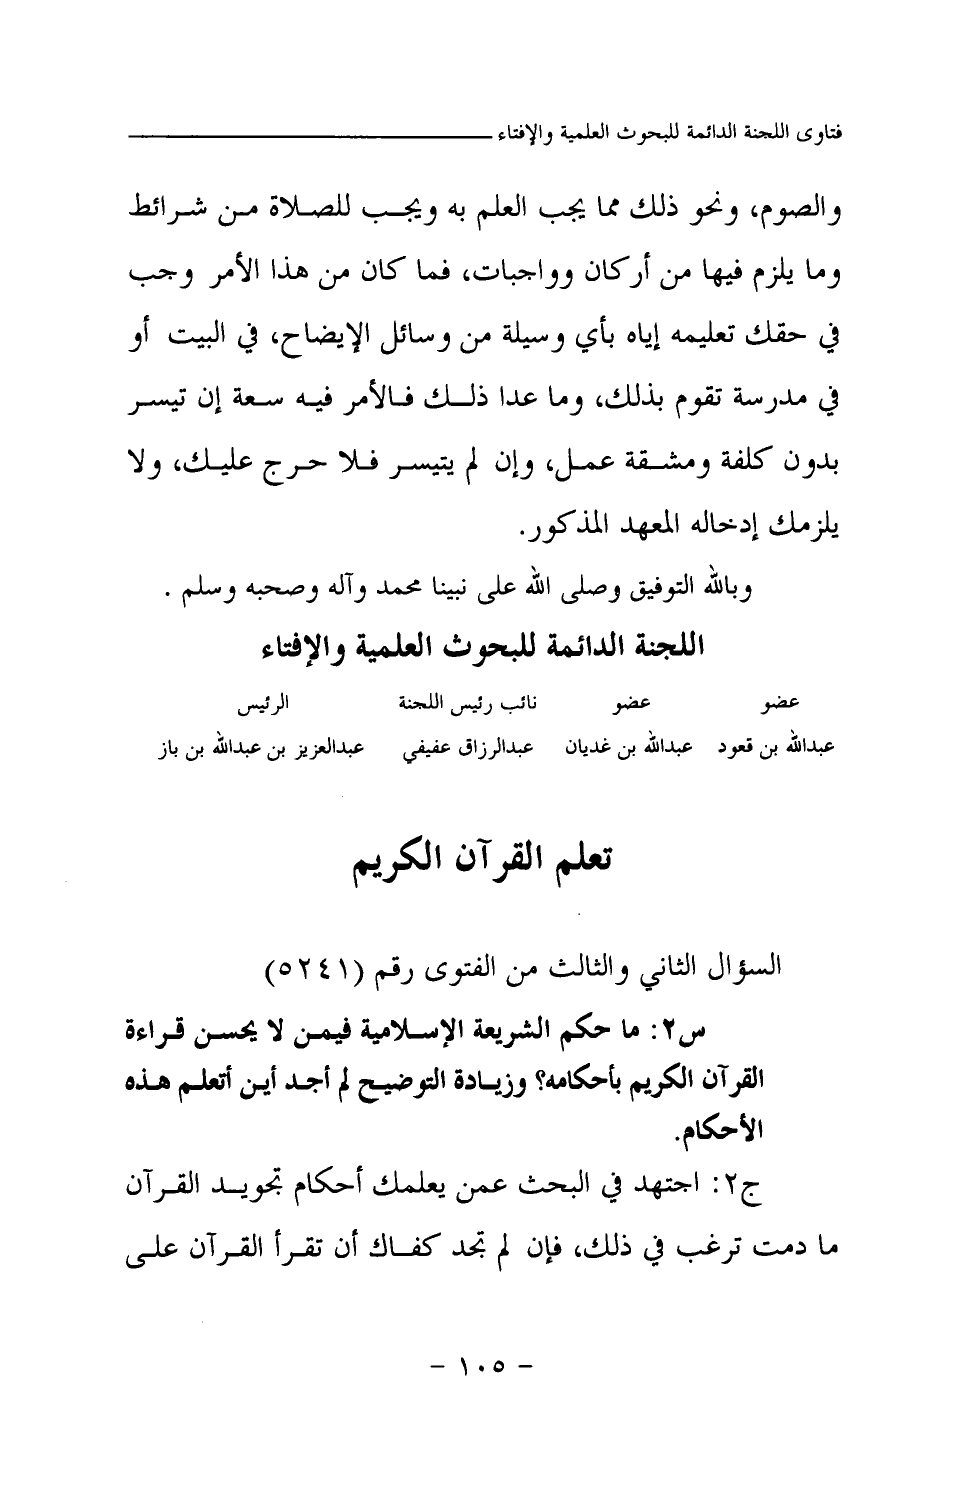 فتاوى اللجنة الدائمة للبحوث العلمية والإفتاء
والصوم، ونحو ذلك مما يجب العلم به ويجب للصلاة من شرائط
وما يلزم فيها من أركان وواجبات، فما كان من هذا الأمر وجب
في حقك تعليمه إياه بأي وسيلة من وسائل الإيضاح، في البيت أو
في مدرسة تقوم بذلك، وما عدا ذلك فالأمر فيه سعة إن تيسر
بدون كلفة ومشقة عمل، وإن لم يتيسر فلا حرج عليك، ولا
يلزمك إدخاله المعهد المذكور.
وبالله التوفيق وصلى الله على نبينا محمد وآله وصحبه وسلم .
اللجنة الدائمة للبحوث العلمية والإفتاء
عضو عضو نائب رئيس اللجنة الرئيس
عبدالله بن قعود عبدالله بن غديان عبدالرزاق عفيفي عبدالعزيز بن عبدالله بن باز
تعلم القرآن الكريم
السؤال الثاني والثالث من الفتوى رقم (٥٢٤١)
س٢: ما حكم الشريعة الإسلامية فيمن لا يحسن قراءة
القرآن الكريم بأحكامه؟ وزيادة التوضيح لم أجد أين أتعلم هذه
الأحكام.
ج٢: اجتهد في البحث عمن يعلمك أحكام تجويد القرآن
ما دمت ترغب في ذلك، فإن لم تجد كفاك أن تقرأ القرآن على
- ١٠٥ -